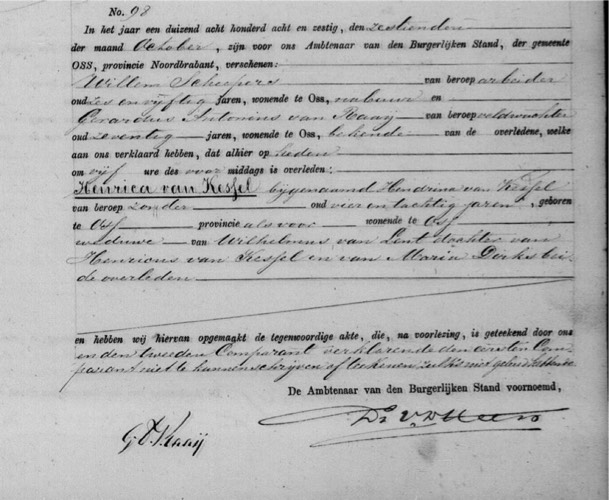 No. 98
In het jaar een duizend acht honderd acht en zestig, den zestienden
der maand October, zijn voor ons Ambtenaar van den Burgerlijken Stand, der gemeente
OSS, provincie Noordbrabant, verschenen:
Willem Scheepers van beroep arbeider
oud zes en vijftig jaren, wonende te Oss, nabuur en
Gerardus Antonius van Raaij van beroep veldwachter
oud zeventig jaren, wonende te Oss, bekende van de overledene, welke
aan ons verklaard hebben, dat alhier op heden
om vijf ure des voor middags is overleden:
Henrica van Kessel bijgenaamd Hendrina van Kessel
van beroep zonder oud vier en tachtig jaren, geboren
te Oss provincie als voor wonende te Oss
weduwe van Wilhelmus van Lent dochter van
Henricus van Kessel en van Maria Dirks bei
de overleden
en hebben wij hiervan opgemaakt de tegenwoordige akte, die, na voorlezing, is geteekend door ons
en den tweeden Comparant verklarende den eersten Com-
parant niet te kunnen schrijven of teekenen
De Ambtenaar van den Burgerlijken Stand voornoemd,
G. V. Raaij